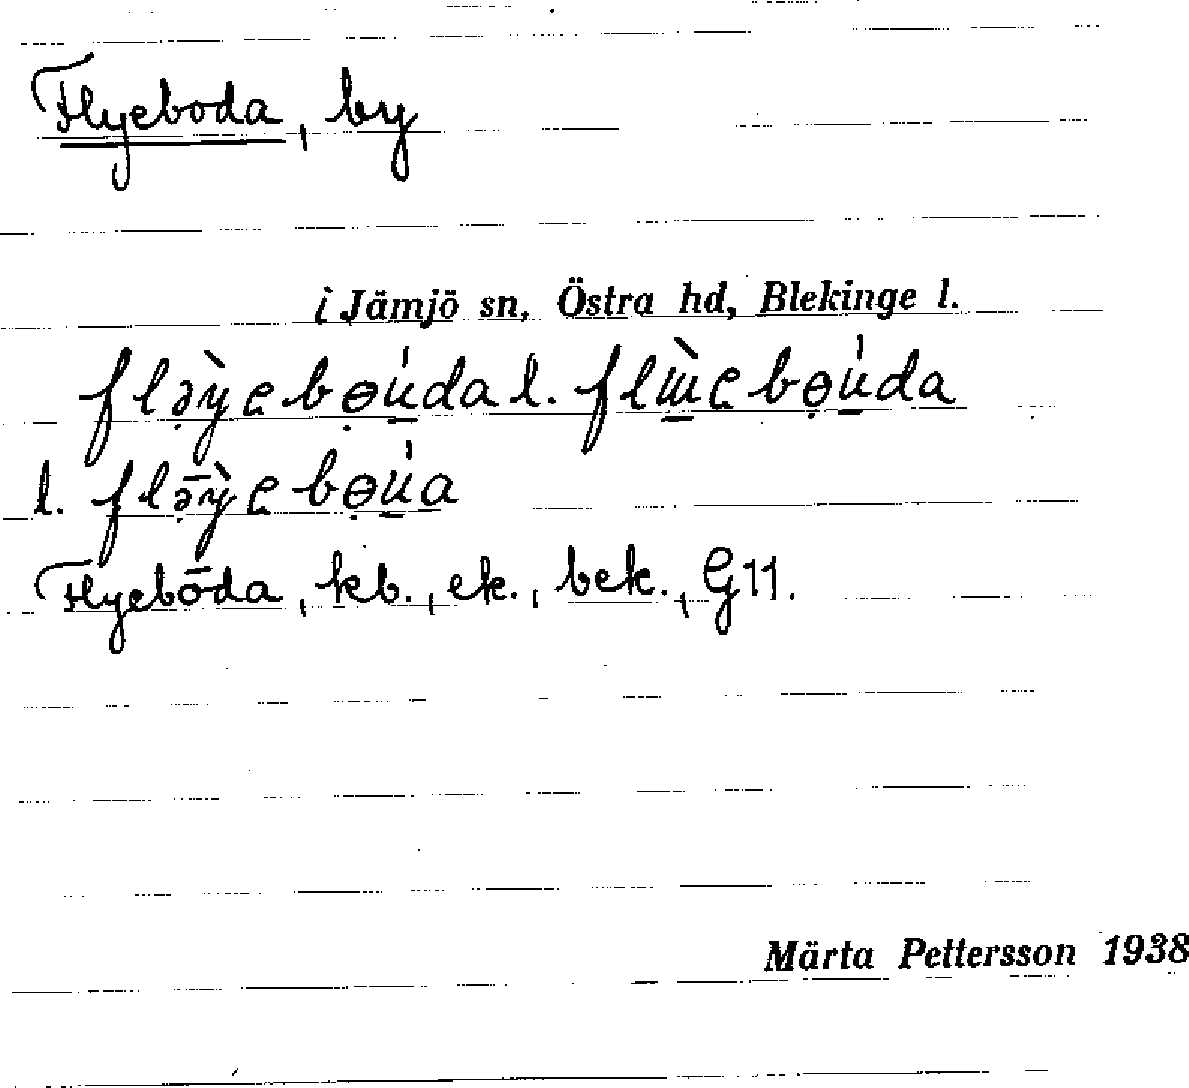 Flyeboda, by
i Jämjö sn, Östra hd, Blekinge l.
flə̣ỳebọú̱da l. flɯ̱̀ebọú̱da
l. flə̣̄ỳebọú̱a
Flyebōda, kb., ek., bek., G11.
Märta Pettersson 1938